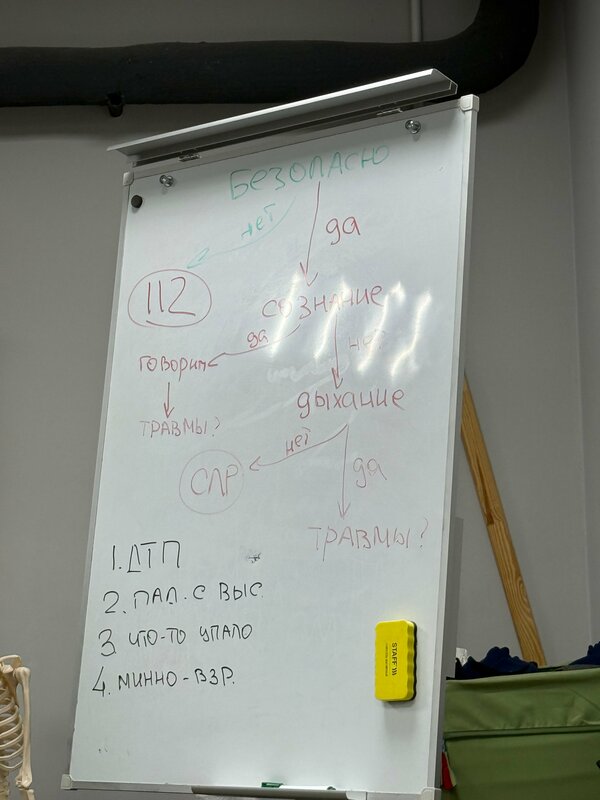 БЕЗОПАСНО
нет
да
112
сознание
да
нет
говорит
дыхание
ТРАВМЫ?
нет
да
СЛР
ТРАВМЫ?
1. ДТП
2. ПАД. С ВЫС.
3. ЧТО-ТО УПАЛО
4. МИННО-ВЗР.
STAFF